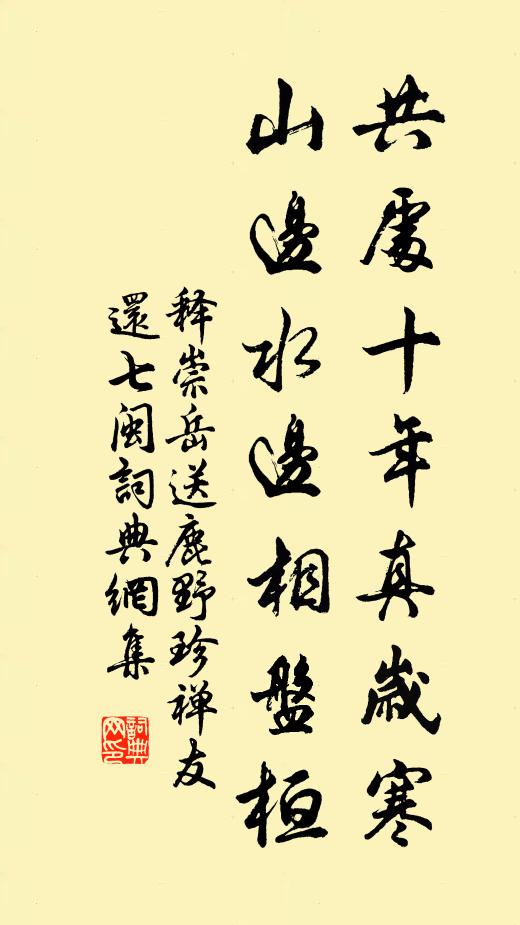 共處十年真歲寒
山邊水邊相盤桓
释崇岳送鹿野珍禅友
還七闽詞典網集
詞典网印